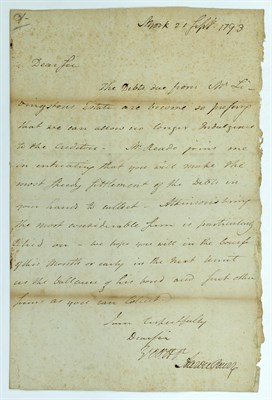 York 21 Sept. 1793
Dear Sir
The Debts due from Mr. Li-
vingstons Estate are become so pressing
that we can allow no longer Indulgence
to the Creditors - Mr. Reade joins me
in intreating that you will make the
most speedy settlement of the Debts in
your hands to collect -
the most considerable sum is particularly
- we hope you will in the course
of this Month or early in the next remit
us the Ballance of his bond and such other
sums as you can collect
I am respectfully
Dear Sir